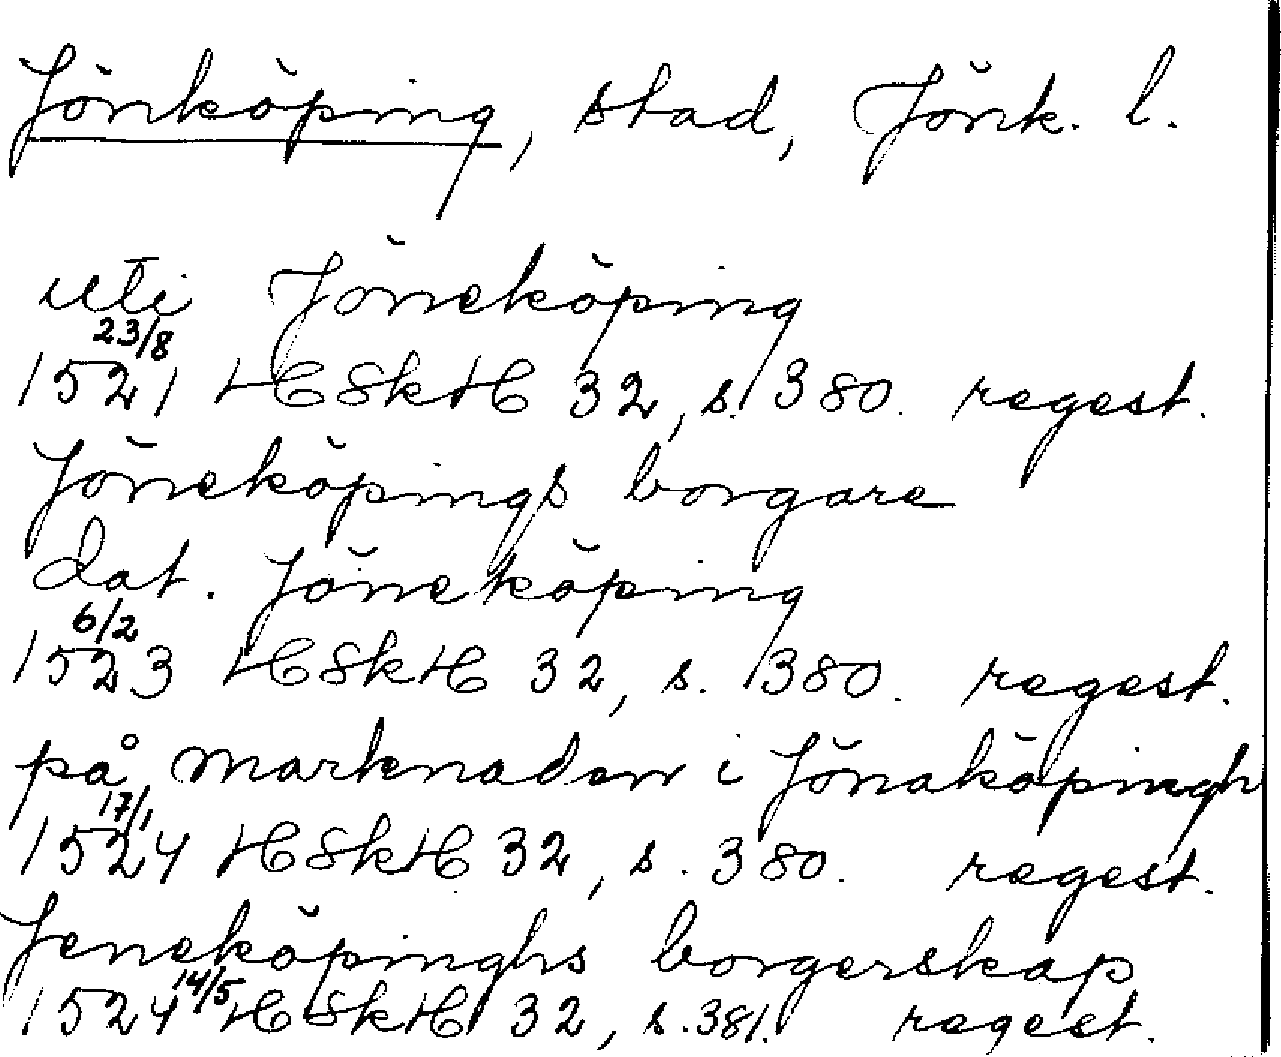 Jönköping, stad, Jönk. l.
uti Jöneköping
23/8
1521 HSkH 32, s. 380. regest.
Jöneköpings borgare
dat. Jöneköping
6/2
1523 HSkH 32, s. 380. regest.
på marknaden i Jönaköpingh
17/1
1524 HSkH 32, s. 380. regest.
Jeneköpinghs borgerskap
14/5
1524 HSkH 32, s. 381. regest.